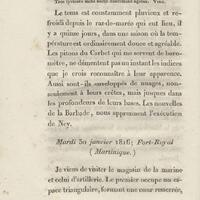 Le tems est constamment pluvieux et re-
froidi depuis le raz-de-marée qui eut lieu, il
y a quinze jours, dans une saison où la tem-
pérature est ordinairement douce et agréable.
Les pitons du Carbet qui me servent de baro-
mètre, ne démentent pas un instant les indices
que je crois reconnaître à leur apparence.
Aussi sont-ils enveloppés de nuages, non-
seulement à leurs crêtes, mais jusque dans
les profondeurs de leurs bases. Les nouvelles
de la Barbade, nous apprennent l'exécution
de Ney.
Mardi 30 janvier 1816; Fort-Royal
(Martinique.)
Je viens de visiter le magasin de la marine
et celui d'artillerie. Le premier occupe un es-
pace triangulaire, formant une cour resserrée,